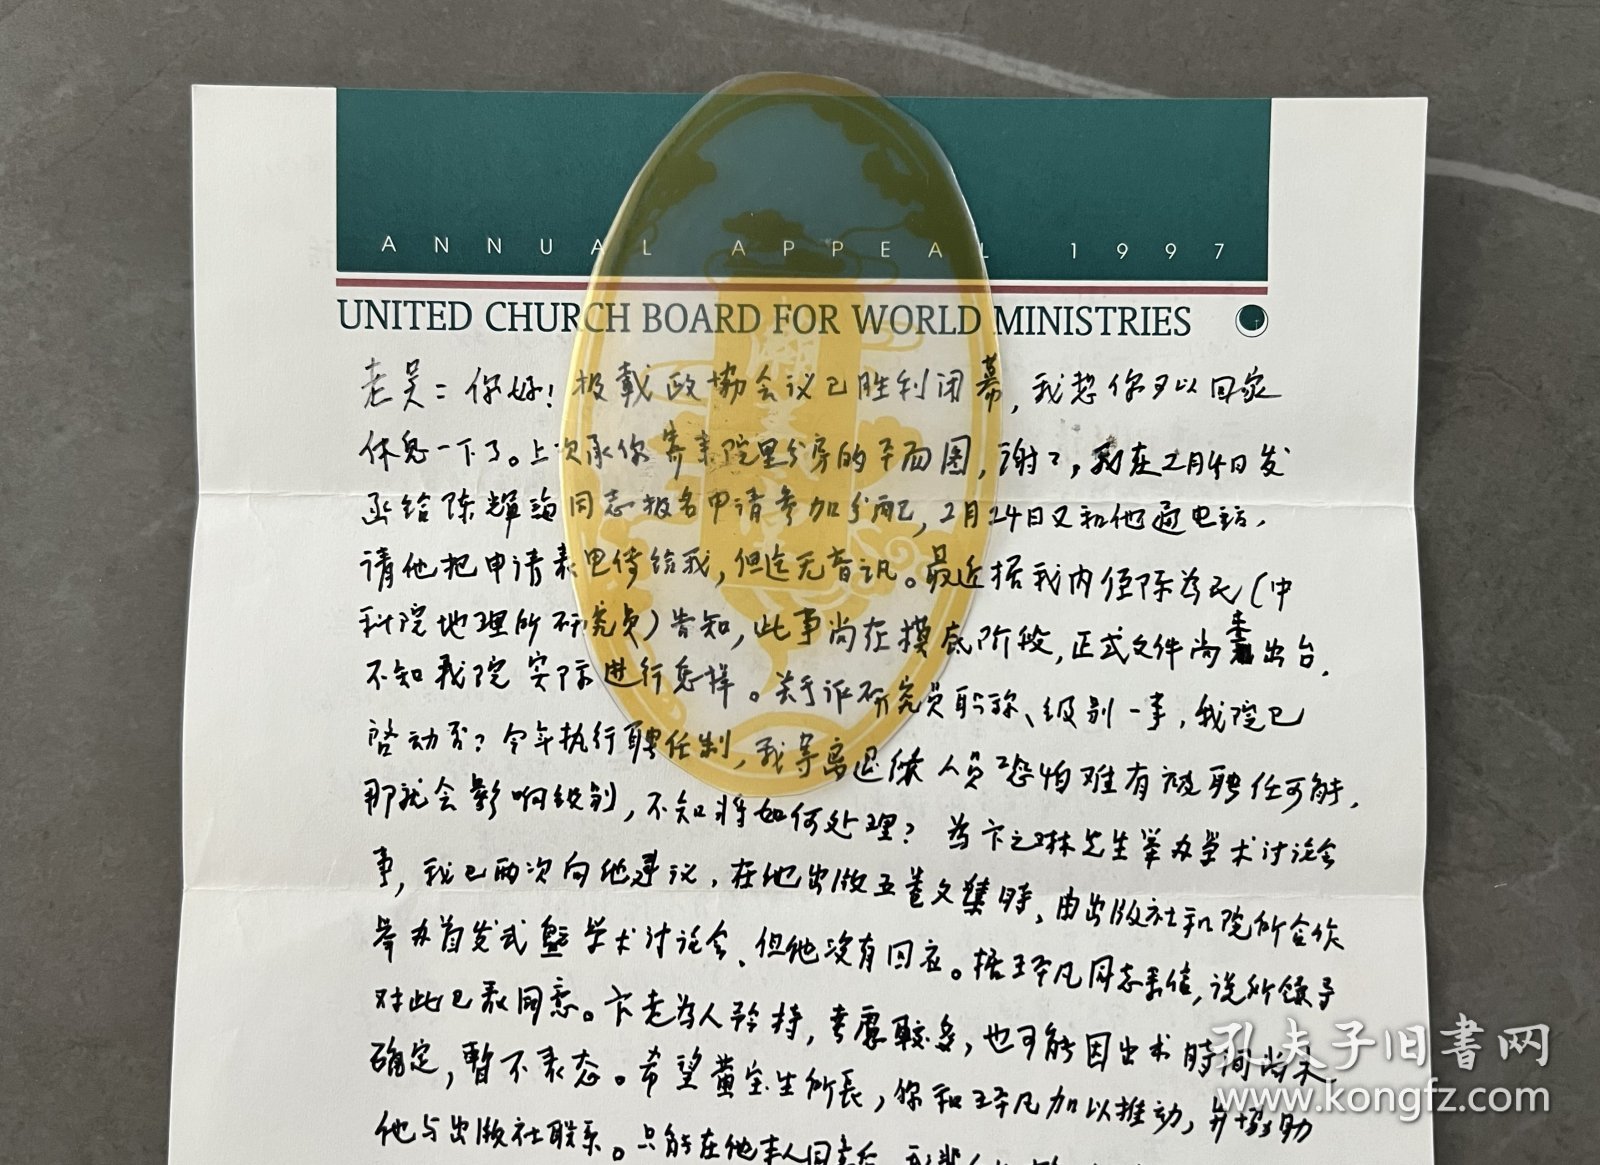 ANNUAL APPEAL 1997
UNITED CHURCH BOARD FOR WORLD MINISTRIES
老吴：你好！报载政协会议已胜利闭幕，我想你可以回家
休息一下了。上次承你寄来院里分房的平面图，谢々，我在2月4日发
函给陈輝 同志报名申请参加分配，2月24日又和他通电话，
请他把申请表电传给我，但迄无音讯。最近据我内侄陈为民（中
科院地理所研究员）告知，此事尚在摸底阶段，正式文件尚未出台，
不知我院实际进行怎样。关于评研究员职称、级别一事，我院已
啓动否？今年执行聘任制，我等离退休人员恐怕难有被聘任可能，
那就会影响级别，不知将如何处理？为卞之琳先生举办学术讨论会
事，我已两次向他建议，在他出版五卷文集時，由出版社和院所合作
举办首发式暨学术讨论会，但他没有回应。据王平凡同志来信，说所领导
对此已表同意。卞老为人矜持，考慮較多，也可能因出书時间尚未
确定，暫不表态。希望黄宝生所長，你和平凡加以推动，并協助
他与出版社联系。只能在他本人同意后，
孔夫子旧书网
www.kongfz.com